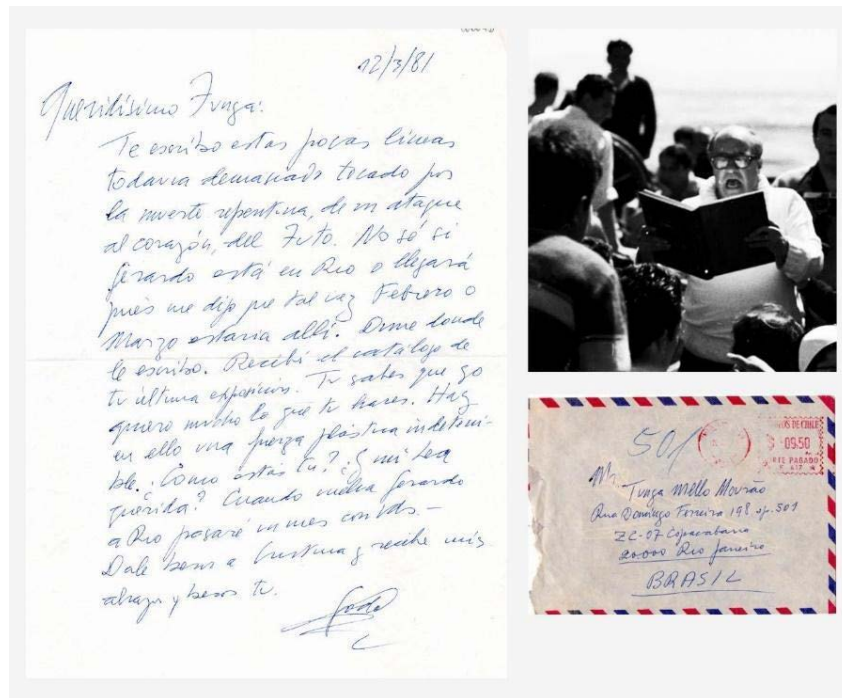 12/3/81
Queridísimo Tunga:
Te escribo estas pocas líneas
todavia demasiado tocado por
la muerte repentina, de un ataque
al corazón, del Tuto. No sé si
Gerardo está en Rio o llegará
pués me dijo que tal vez Febrero o
Marzo estaria allí. Dime donde
le escribo. Recibí el catálogo de
tu última exposición. Tu sabes que yo
quiero mucho lo que tu haces. Hay
en ello una fuerza plástica indeteni-
ble. ¿Cómo estás tu? ¿y mi Lea
querida? Cuando vuelva Gerardo
a Rio pasaré un mes con Uds –
Dale besos a Cristina y recibe mis
abrazos y besos tu.
Godo
501
OS DE CHILE
09.50
PAGADO
Mr.
Tunga Mello Mourão
Rua Domingo Ferreira 198 ap. 501
ZC-07 Copacabana
20000 Rio Janeiro
BRASIL